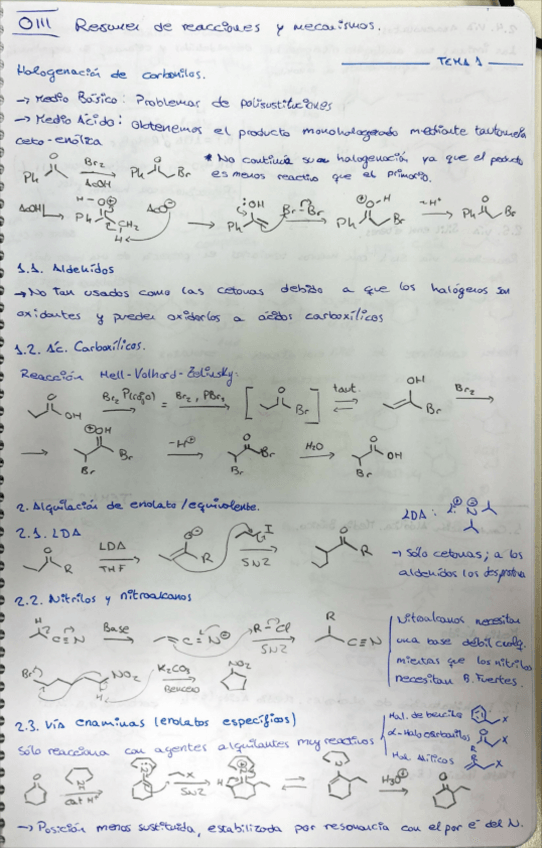 OIII Resumen de reacciones y mecanismos.
TEMA 1
Halogenación de carbonilos.
→ Medio Básico: Problemas de polisustituciones
→ Medio Ácido: Obtenemos el producto monohalogenado mediante tautomería
ceto-enólica
* No continúa su halogenación ya que el producto
es menos reactivo que el primario.
Ph O Br2 AcOH Ph O Br
AcOH H-O⊕ Ph CH2 H AcO⊖ :OH Ph Br-Br ⊕O-H Ph Br -H⊕ O Ph Br
1.1. Aldehídos
→ No tan usados como las cetonas debido a que los halógenos son
oxidantes y pueden oxidarlos a ácidos carboxílicos
1.2. Ác. Carboxílicos.
Reacción Hell-Volhard-Zelinsky:
O OH Br2 P(rojo) = Br2, PBr3 O Br taut. OH Br Br2
⊕OH Br Br -H⊕ O Br Br H2O O OH Br
2. Alquilación de enolato/equivalente.
LDA: Li⊕ ⊖N
2.1. LDA
O R LDA THF O⊖ R I SN2 O R
→ Sólo cetonas; a los
aldehídos los desprotona
2.2. Nitrilos y nitroalcanos
H C≡N Base C=N⊖ R-Cl SN2 R C≡N
Nitroalcanos necesitan
una base débil cualq.
mientras que los nitrilos
necesitan B. Fuertes.
Br NO2 H K2CO3 Benceno NO2
2.3. Vía enaminas (enolatos específicos)
Sólo reacciona con agentes alquilantes muy reactivos
Hal. de bencilo X
α-Halo carbonilos O X
Hal. Alílicos R X
O N H cat H⊕ N X SN2 H N⊕ N H3O⊕ O
→ Posición menos sustituida, estabilizada por resonancia con el par e⁻ del N.